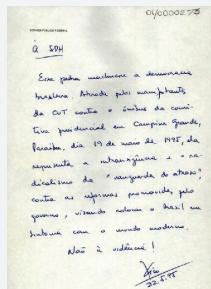 04/0000273
SERVIÇO PÚBLICO FEDERAL
À SDH
Esse pedra machucou a democracia
brasileira. Atirada pelos manifestantes
da CUT contra o ônibus da comi-
tiva presidencial em Campina Grande,
Paraíba, dia 19 de maio de 1995, ela
representa a intransigência e o ra-
dicalismo da "vanguarda do atraso",
contra as reformas promovidas pelo
governo, visando colocar o Brasil em
sintonia com o mundo moderno.
Não à violência!
22.5.95